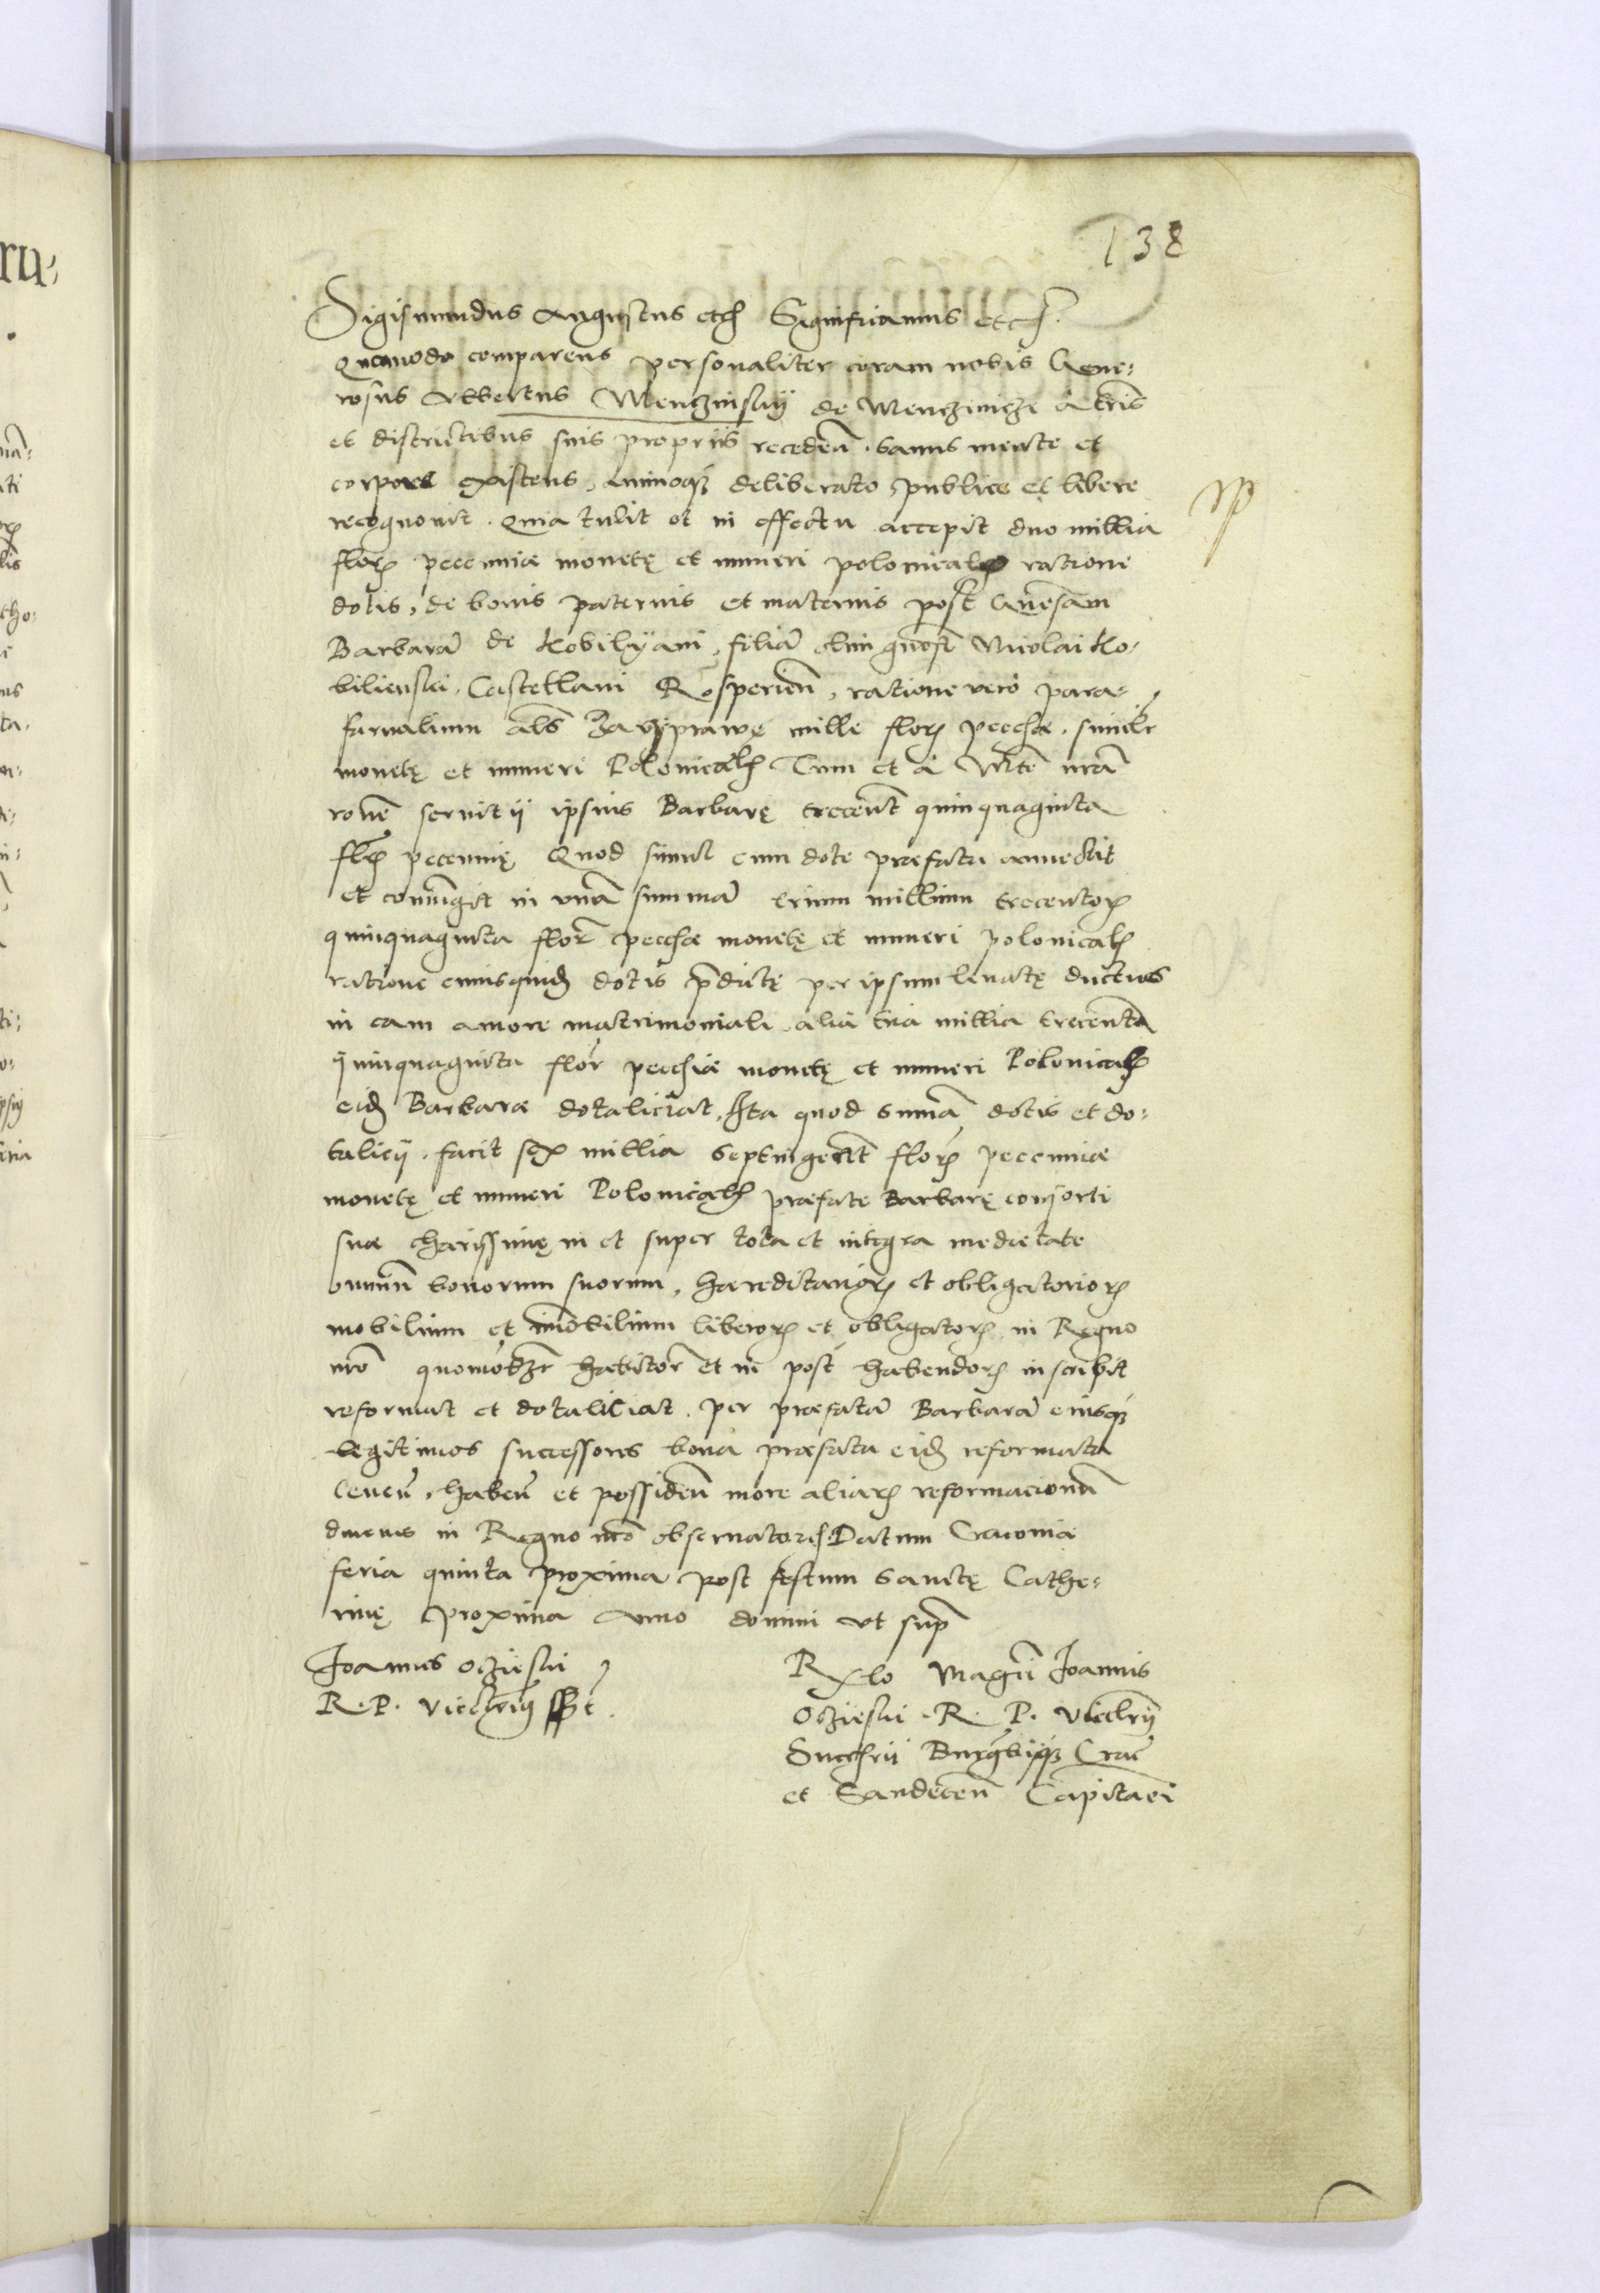 138
Sigismundus Augustus etc Significamus etc.
Quomodo comparens personaliter coram nobis Gene-
rosus Albertus Menczinskij de Menczinicze a terris
et districtibus suis propriis receden. sanus mente et
corpore existens, animoq3 deliberato publice et libere
recognovit. Quia tulit et in effectu accepit duo millia
flor pecuniae monetę et numeri polonical ratione
dotis, de bonis paternis et maternis post Gnesam
Barbarā de Kobilÿani, filiā olim gnosi Nicolai Ko-
bilienski, Castellani Rosperien, ratione vero para-
furnalium als Za Wyprawę mille flor pecchae. similr
monetę et numeri Polonical Tum et a Mte nrā
ronē servitij ipsius Barbarę trecent quinquaginta
flor pecunię Quod simul cum dote praefata annectit
et coniūgit in unā summā trium millium trecentor
quinquaginta flor pecchae monetę et numeri polonical
ratione cuiusquid dotis pdictę per ipsum levatę ductus
in eam amore matrimoniali alia tria millia trecenta
quinquaginta flor pecchiae monetę et numeri Polonical
eid Barbarae dotaliciat. Ita quod sumā dotis et do-
talicij. facit sex millia septingent flor pecuniae
monetę et numeri Polonical praefate Barbarę consorti
suae charissimę in et super tota et integra medietate
omniū bonorum suorum, haereditarior et obligatorior
mobilium et imobilium liberor et obligator in Regno
nro quomodzr habitor et in post habendor inscribit
reformat et dotaliciat. per praefatā Barbarā eiusq3
legitimos successores bona praefata eid reformata
tenen, haben et possiden more aliar reformacionū
dinens in Regno nro observator. Datum Cracovia
feria quinta proxima post festum Sanctę Cathe-
rinę proxima Anno domini ut sup
Joannes Oczieski
R. P. Vicecłrius sst.
Rlo Magci Joannis
Oczieski. R. P. Vicecłrij
Succłrii Burgbiq3 Crac
et Sandecen Capitanei